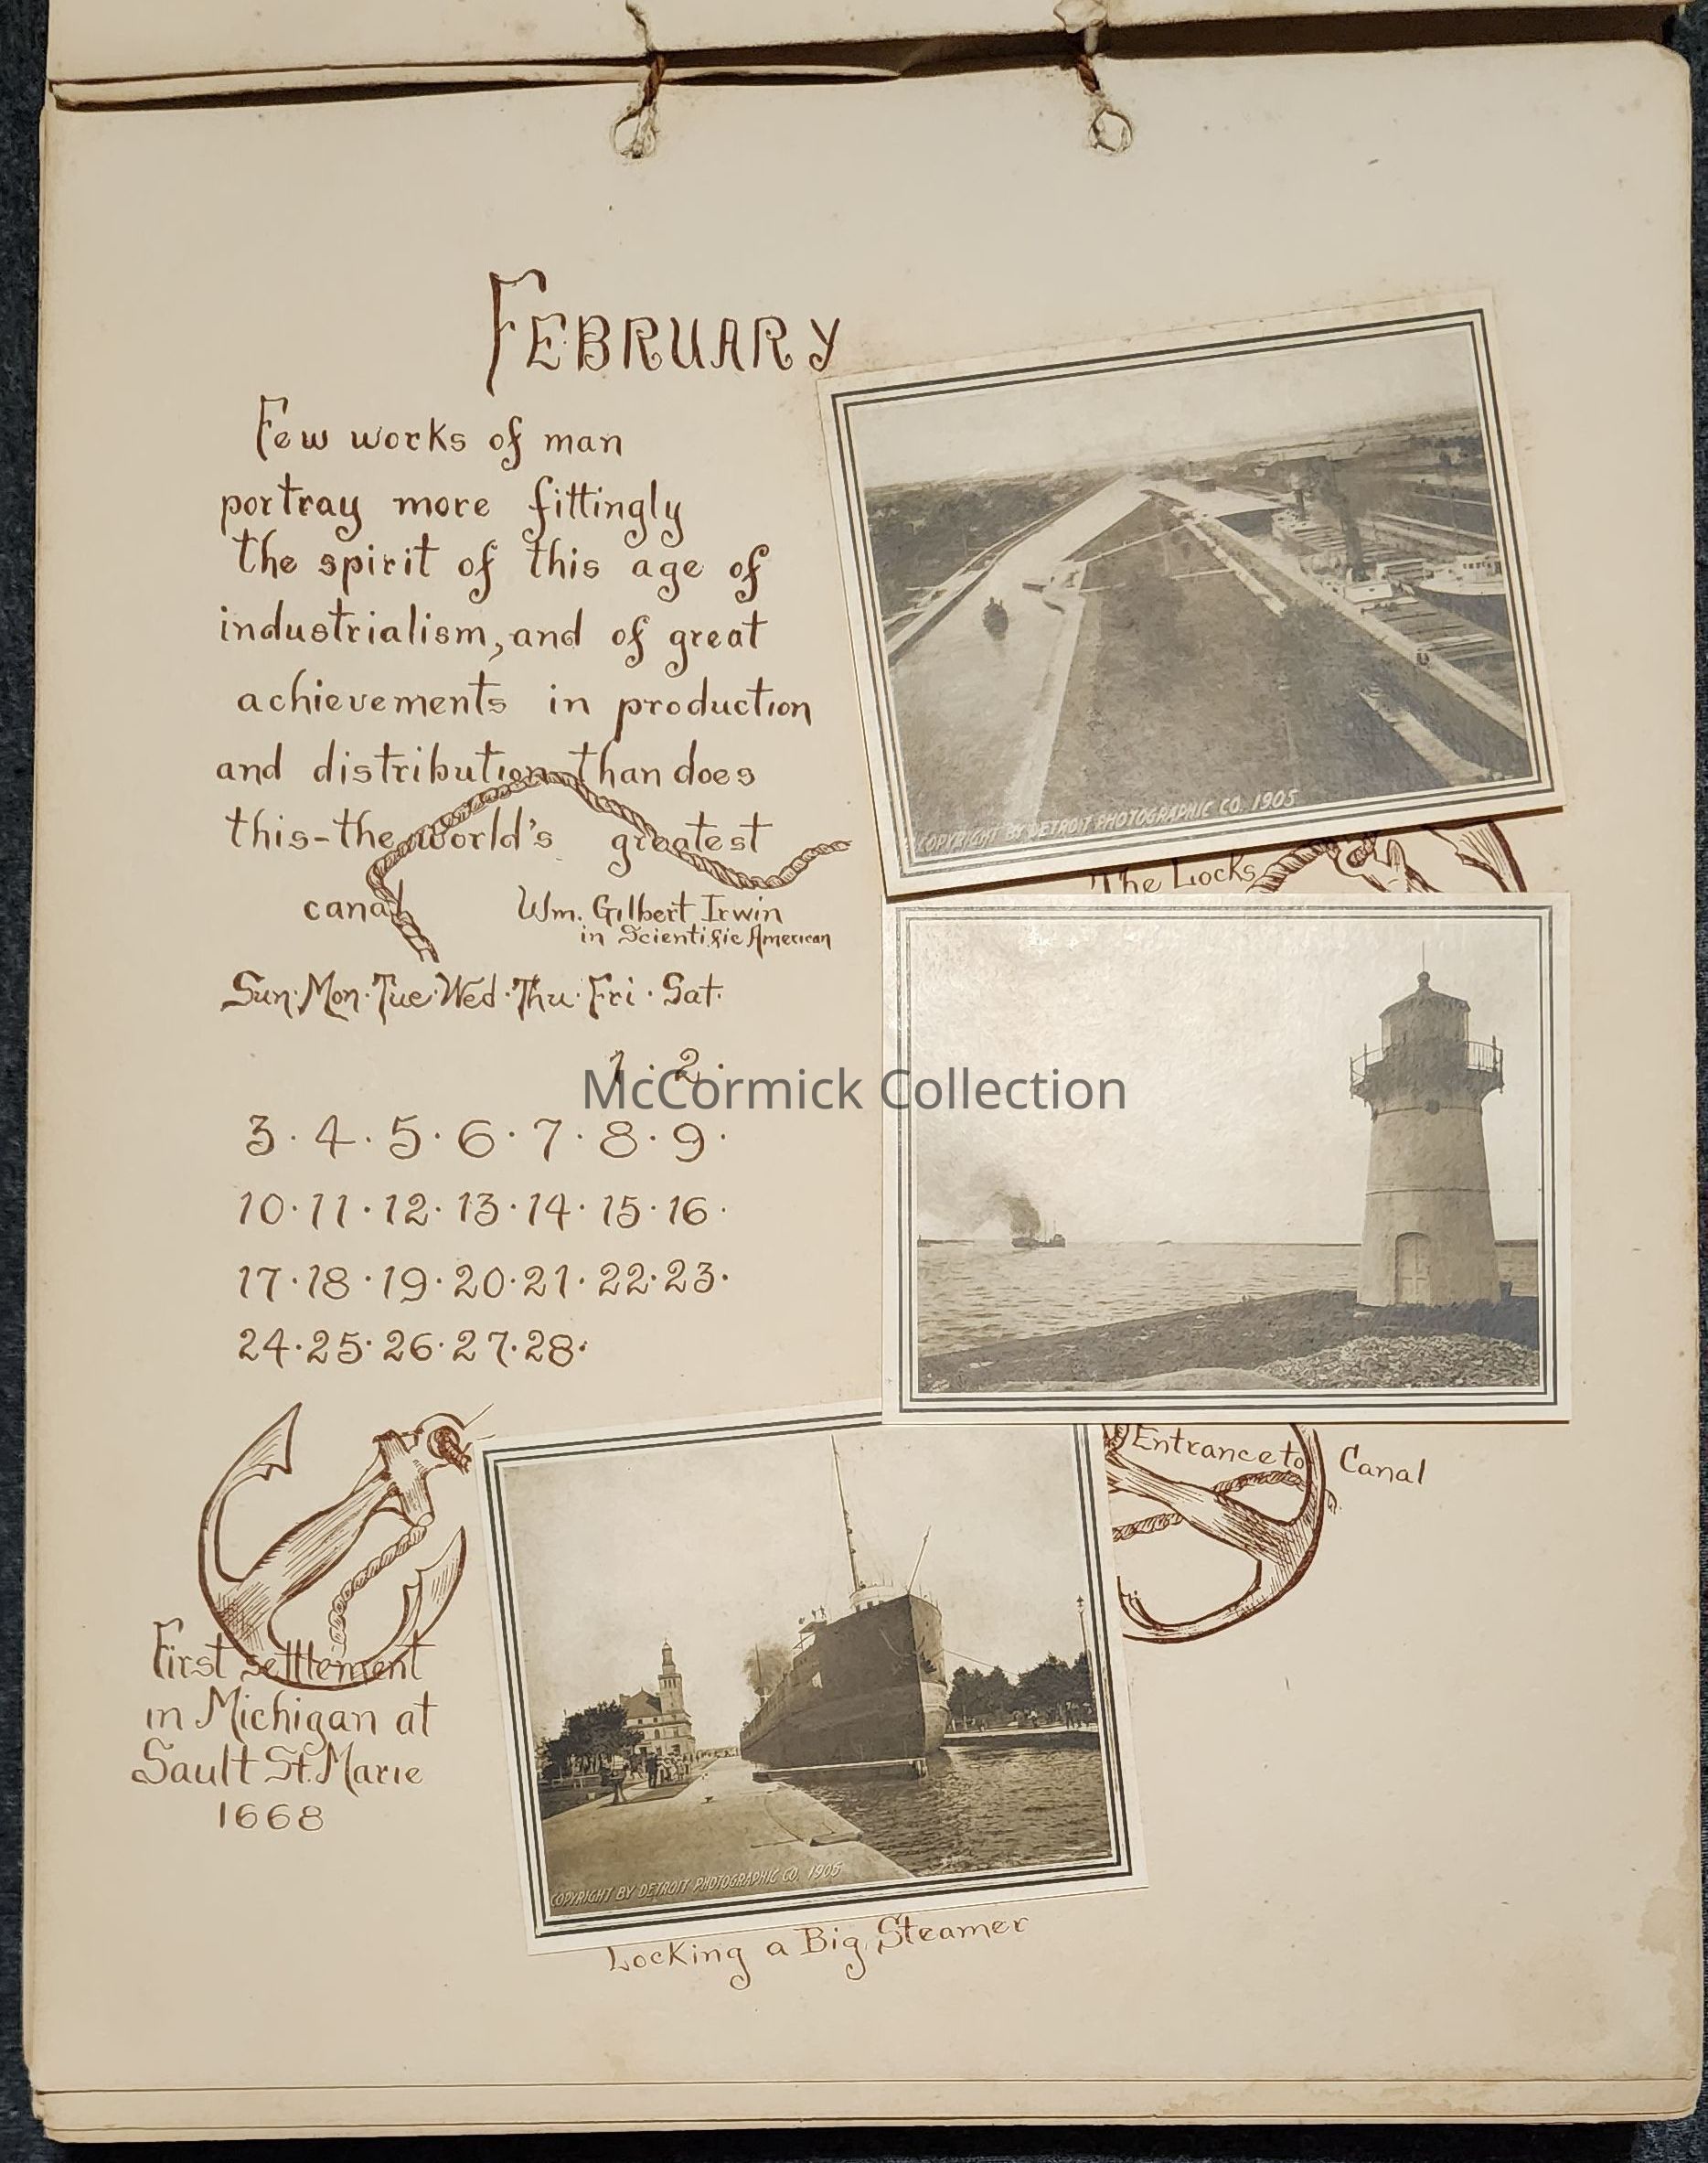 FEBRUARY
Few works of man
portray more fittingly
the spirit of this age of
industrialism, and of great
achievements in production
and distribution than does
this-the world's greatest
canal
Wm. Gilbert Irwin
in Scientific American
Sun·Mon·Tue·Wed·Thu·Fri·Sat·
1·2·
3·4·5·6·7·8·9·
10·11·12·13·14·15·16·
17·18·19·20·21·22·23·
24·25·26·27·28·
COPYRIGHT BY DETROIT PHOTOGRAPHIC CO. 1905
The Locks
McCormick Collection
Entrance to Canal
First settlement
in Michigan at
Sault St. Marie
1668
COPYRIGHT BY DETROIT PHOTOGRAPHIC CO. 1905
Locking a Big Steamer